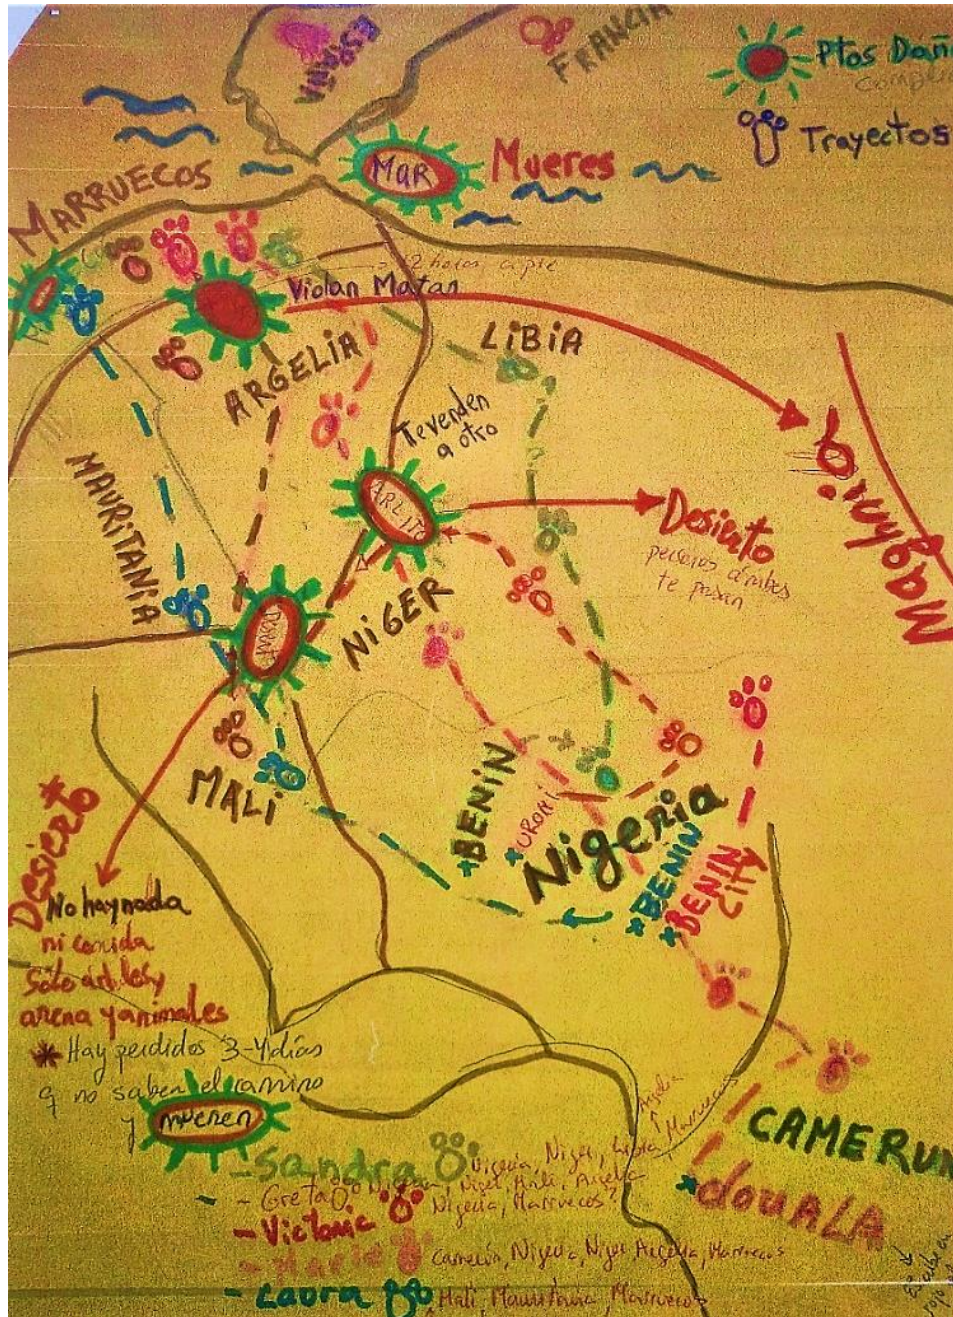 ESPAÑA
FRANCIA
Ptos Dañ
Trayectos
MAR
Mueres
MARRUECOS
2 horas a pie
Violan Matan
ARGELIA
LiBiA
Te venden
a otro
MAURITANIA
ARLIT
Desierto
personas árabes
te pasan
Maghni?
Desierto
NiGER
MALi
*BENiN
*UROMi
Nigeria
*BENiN
*BENiN
CiTY
Desierto*
No hay nada
ni comida
Sólo árboles y
arena y animales
* Hay perdidos 3-4 días
q no saben el camino
y mueren
CAMERUN
*douALA
- Sandra Nigeria, Niger, Libia, Argelia, Marruecos
- Greta Nigeria, Niger, Mali, Argelia
- Victoria Nigeria, Marruecos?
- Marie Camerún, Nigeria, Niger Argelia, Marruecos
- Laura Mali, Mauritania, Marruecos